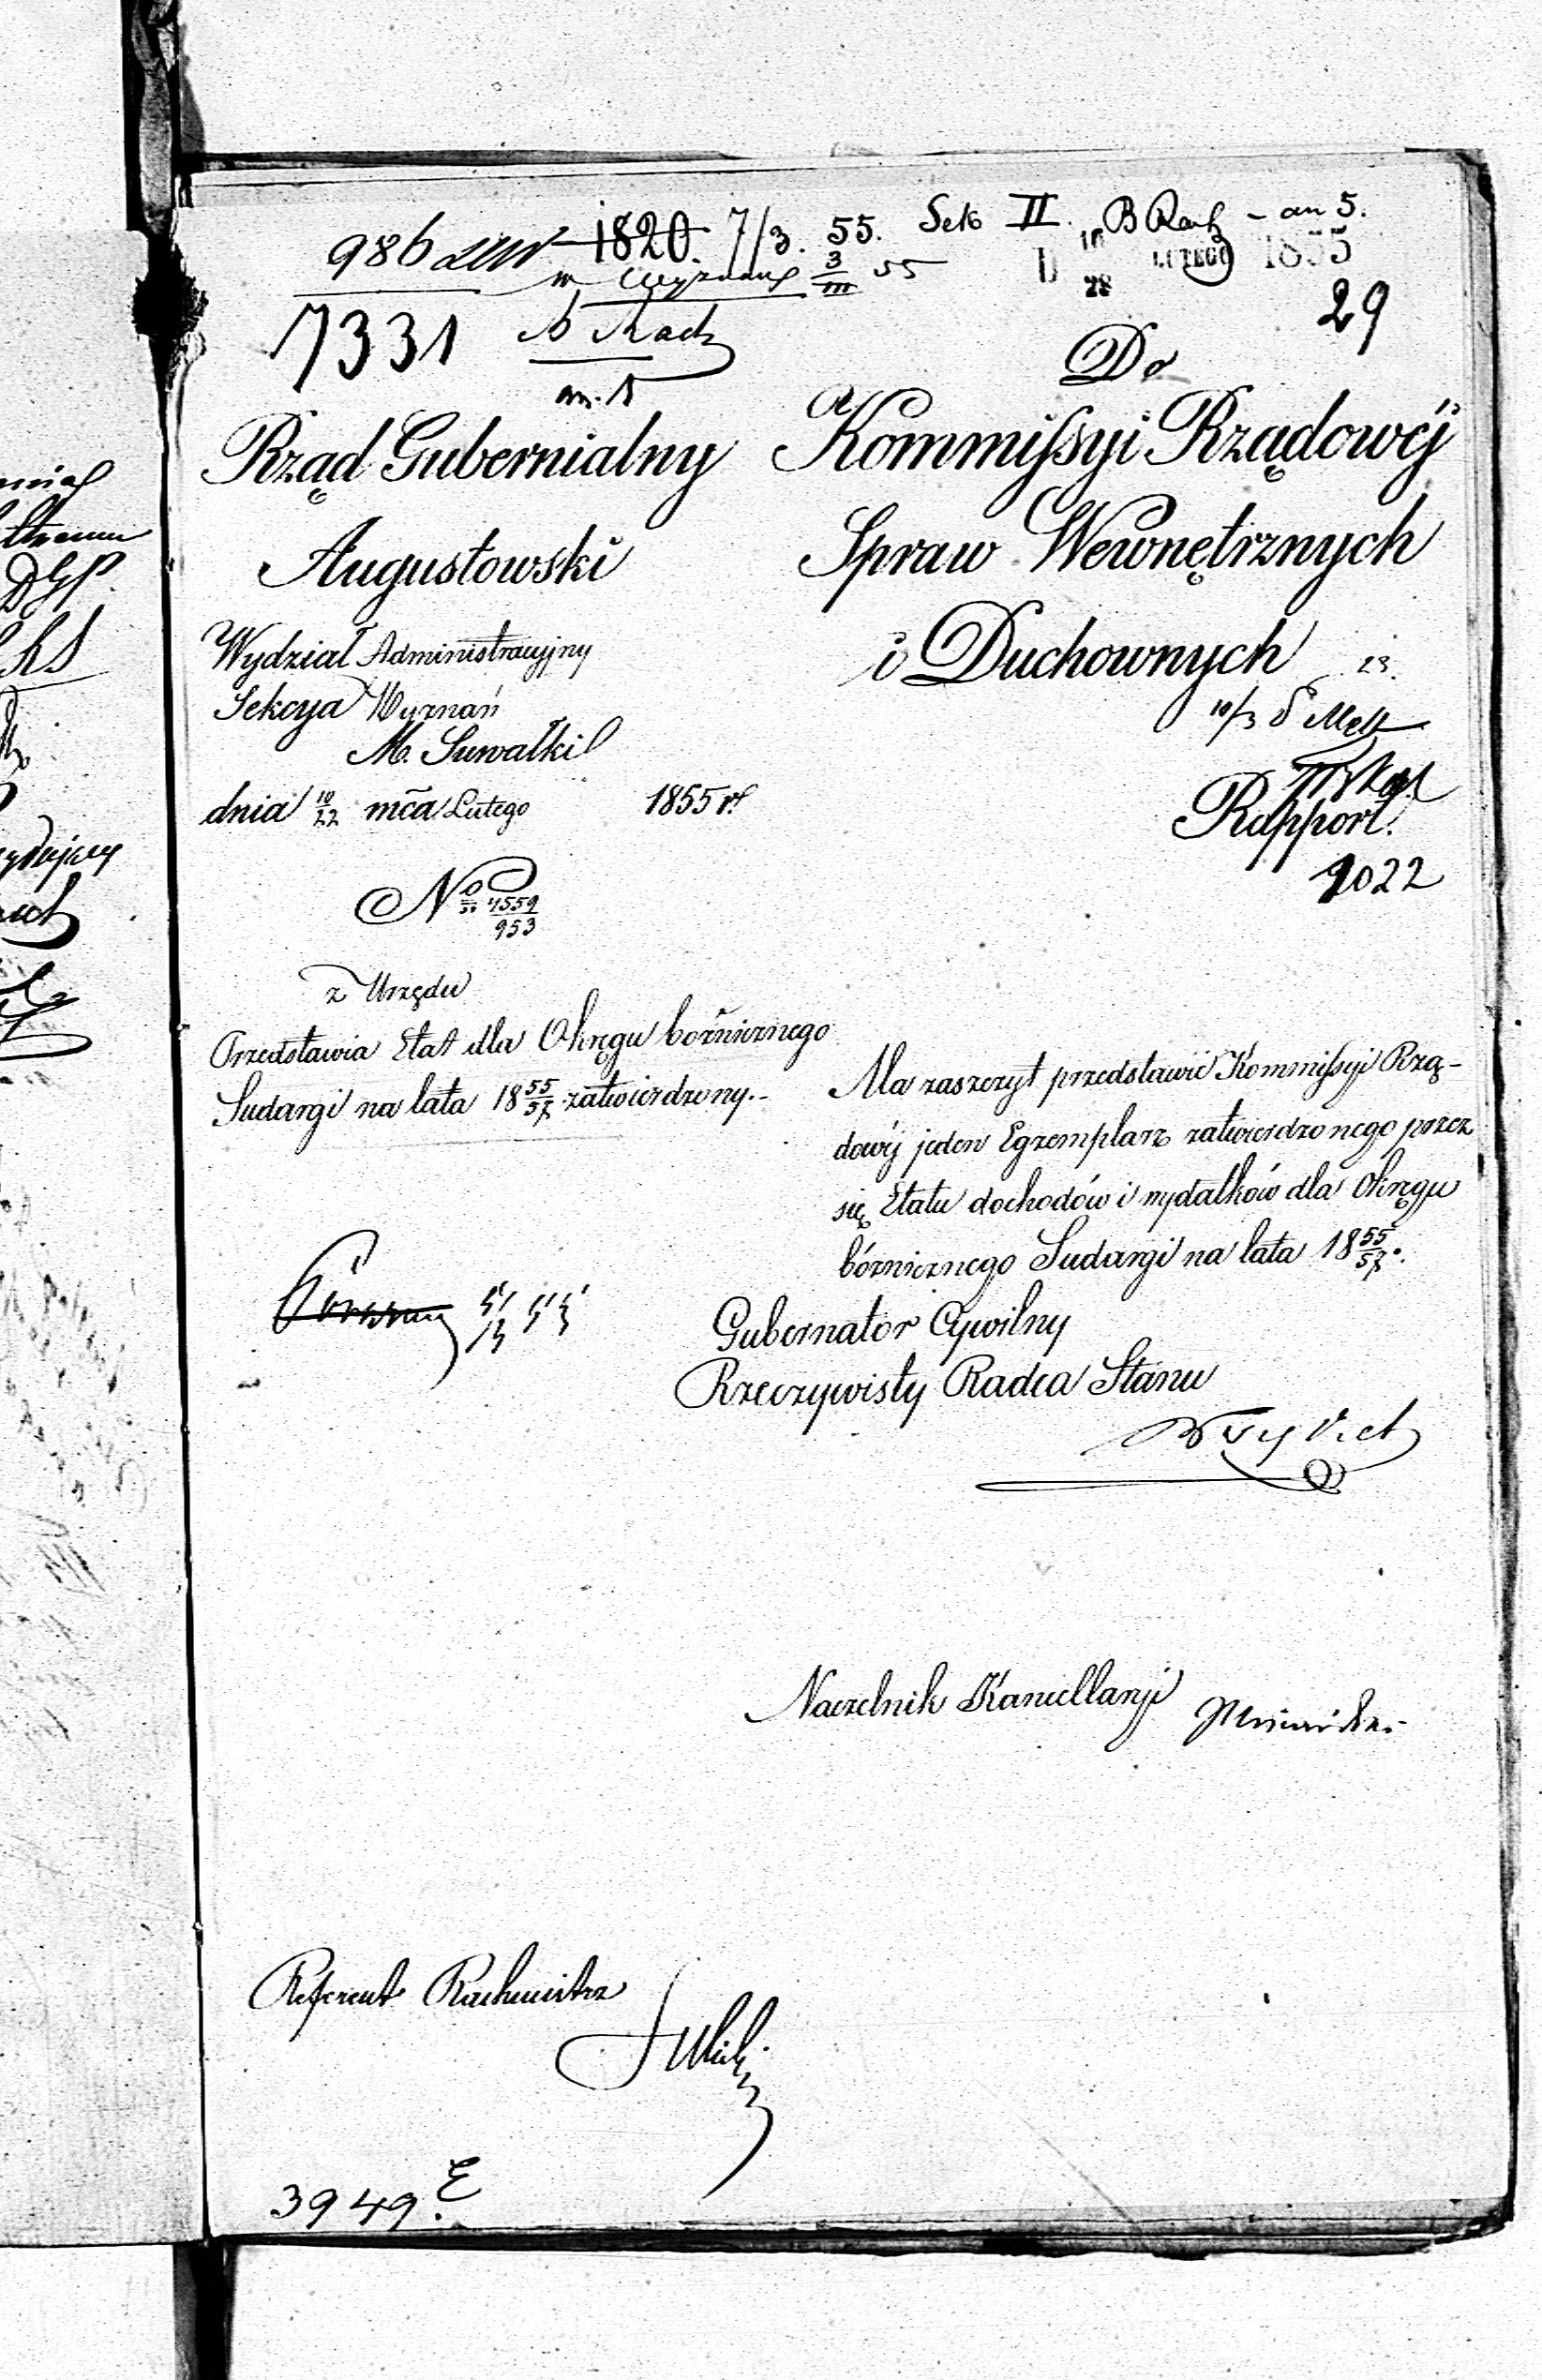 986 1820. 7/3. 55. Sek II. B Rach - an 5.
w Wyznań 3/III 55 D 16/28 LUTEGO 1855
7331 B Rach 29
an. 5
Do
Rząd Gubernialny
Augustowski
Wydział Administracyjny
Sekcya Wyznań
M. Suwałki
dnia 10/22 mca Lutego 1855 r.
No 4559/953
Kommissyi Rządowéj
Spraw Wewnętrznych
i Duchownych
23.
10/3
Rapport.
9022
z Urzędu
Przedstawia Etat dla Okręgu bożnicznego
Sudargi na lata 18 55/57 zatwierdzony.-
Ma zaszczyt przedstawić Kommissyi Rzą-
dowéj jeden Egzemplarz zatwierdzonego przez
się Etatu dochodów i wydatków dla Okręgu
bóżnicznego Sudargi na lata 18 55/57.
Gubernator Cywilny
Rzeczywisty Radca Stanu
Naczelnik Kancellaryi
Referent Rachmistrz
3949. E